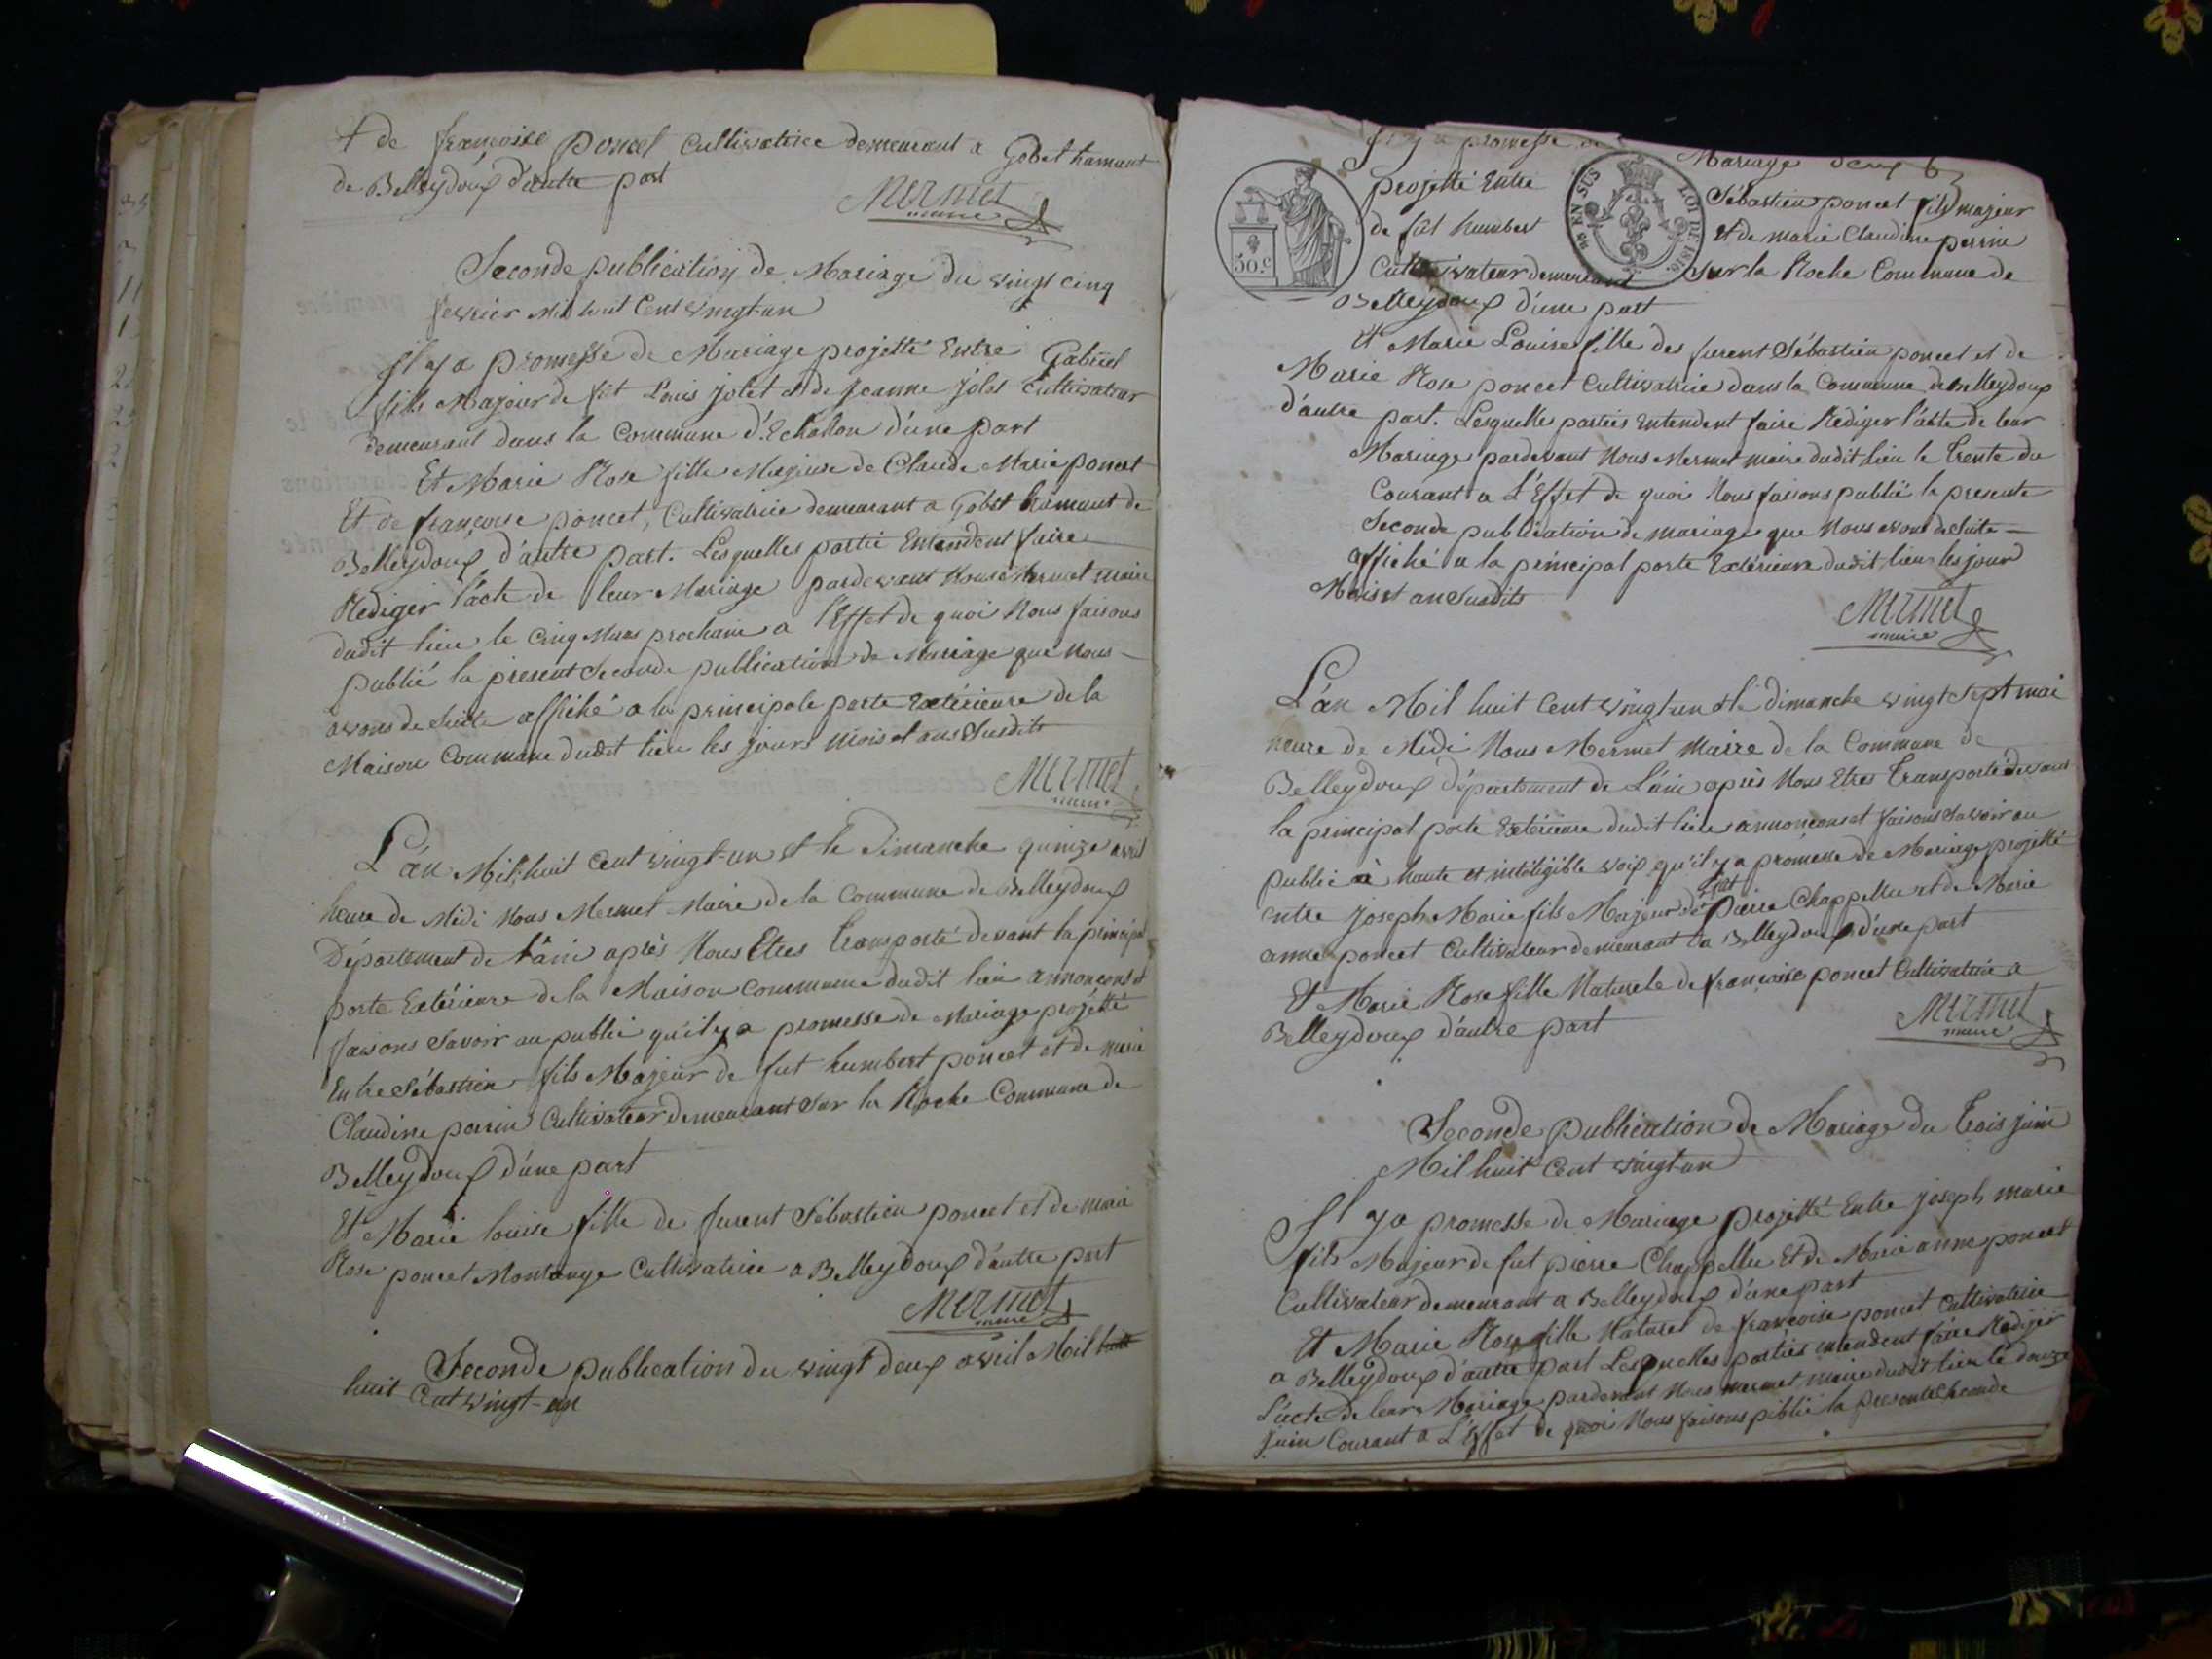 + de françoise poncet Cultivatrice demeurant a Gobet hamant
de Belleydoux d'autre part
Mermet
maire
Seconde publication de Mariage du vingt cinq
fevrier Mil huit Cent vingt-un
il y a promesse de Mariage projetté Entre Gabriel
fils Majeur de fût Louis Jolet et de Jeanne Jolet Cultivateur
demeurant dans la Commune d'Echallon d'une part
Et Marie Rose fille Majeure de Claude Marie poncet
Et de françoise poncet, Cultivatrice demeurant a Gobet hamant de
Belleydoux d'autre part. Lesquelles partie Entendent faire
Rediger l'acte de leur Mariage pardevant Nous Mermet maire
dudit lieu le Cinq Mars prochain a l'Effet de quoi Nous faisons
publié la présent Seconde publication de Mariage que Nous
avons de Suite affiché a la principale porte Extérieure de la
Maison Commune dudit lieu les jours mois et ans Susdits
Mermet
maire
L'an Mil huit Cent vingt-un et le Dimanche quinze avril
heure de Midi Nous Mermet Maire de la Commune de Belleydoux
Département de l'ain après Nous Etres transporté devant la principal
porte Extérieure de la Maison Commune dudit lieu annonçons et
faisons Savoir au public qu'il y a promesse de Mariage projetté
Entre Sébastien fils Majeur de fut humbert poncet et de marie
Claudine perrin Cultivateur demeurant Sur la Roche Commune de
Belleydoux d'une part
Et Marie louise fille de furent Sébastien poncet et de marie
Rose poncet Montange Cultivatrice a Belleydoux d'autre part
Mermet
maire
Seconde publication du vingt deux avril Mil huit
huit Cent vingt-un
il y a promesse de Mariage
projetté Entre Sébastien poncet fils majeur
de fût humbert et de marie Claudine perrin
Cultivateur demeurant sur la Roche Commune de
Belleydoux d'une part
50.c
EN SUS LOI DE 1816
Et Marie Louise fille des furent Sébastien poncet et de
Marie Rose poncet Cultivatrice dans la Commune de Belleydoux
d'autre part. Lesquelles parties Entendent faire Rediger l'acte de leur
Mariage pardevant Nous Mermet maire dudit lieu le trente du
Courant a L'Effet de quoi Nous faisons publié la presente
Seconde publication de mariage que Nous avons de Suite
affiché a la principal porte Extérieure dudit lieu les jour
Mois et an Susdits
Mermet
maire
L'an Mil huit Cent vingt-un et le Dimanche vingt Sept mai
heure de Midi Nous Mermet Maire de la Commune de
Belleydoux département de L'ain après Nous Etres transporté devant
la principal porte Extérieure dudit lieu annonçons et faisons Savoir au
public à haute et inteligible voix qu'il y a promesse de Mariage projetté
entre Joseph Marie fils Majeur de fut Pierre Chappellu et de Marie
anne poncet Cultivateur demeurant a Belleydoux d'une part
Et Marie Rose fille Naturele de françoise poncet Cultivatrice a
Belleydoux d'autre part
Mermet
maire
Seconde Publication de Mariage du trois juin
Mil huit Cent vingt-un
Il y a promesse de Mariage projetté Entre joseph marie
fils Majeur de fut pierre Chappellu Et de Marie anne poncet
Cultivateur demeurant a Belleydoux d'une part
Et Marie Rose fille Naturel de françoise poncet Cultivatrice
a Belleydoux d'autre part Lesquelles parties entendent faire Rediger
L'acte de leur Mariage pardevant Nous mermet maire dudit lieu le douze
juin Courant a L'Effet de quoi Nous faisons publié la presente Seconde